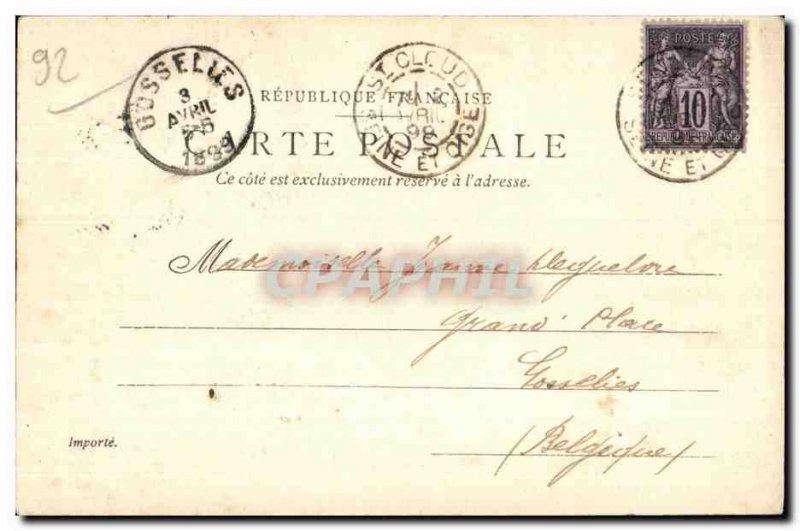 92
GOSSELIES
3
AVRIL
1899
ST CLOUD
AVRIL
SEINE ET OISE
POSTE
10
RÉPUBLIQUE FRANÇAISE
SEINE ET
RÉPUBLIQUE FRANÇAISE
CARTE POSTALE
Ce côté est exclusivement réservé à l'adresse.
CPAPHIL
Mademoiselle Jeanne
Grand' Place
Gosselies
(Belgique)
Importé.